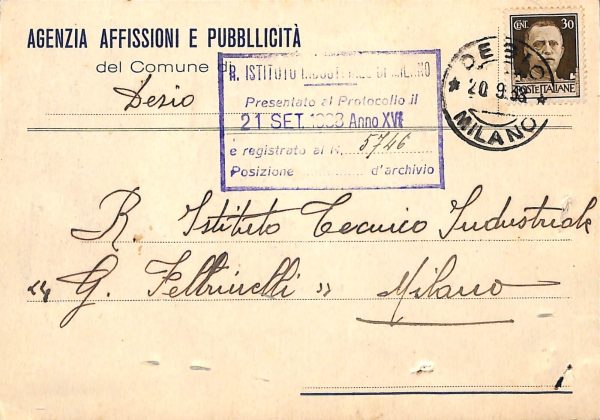 AGENZIA AFFISSIONI E PUBBLICITÀ
del Comune di
Desio
R. ISTITUTO INDUSTRIALE DI MILANO
Presentato al Protocollo il
21 SET. 1938 Anno XVI
e registrato al N. 5746
Posizione d'archivio
CENT. 30
POSTE ITALIANE
DESIO
20.9.38
MILANO
R. Istituto Tecnico Industriale
"G. Feltrinelli" Milano